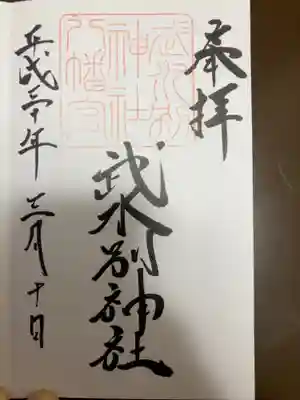 奉拝
武水別
神社
八幡宮
武水別神社
平成三十年三月十日